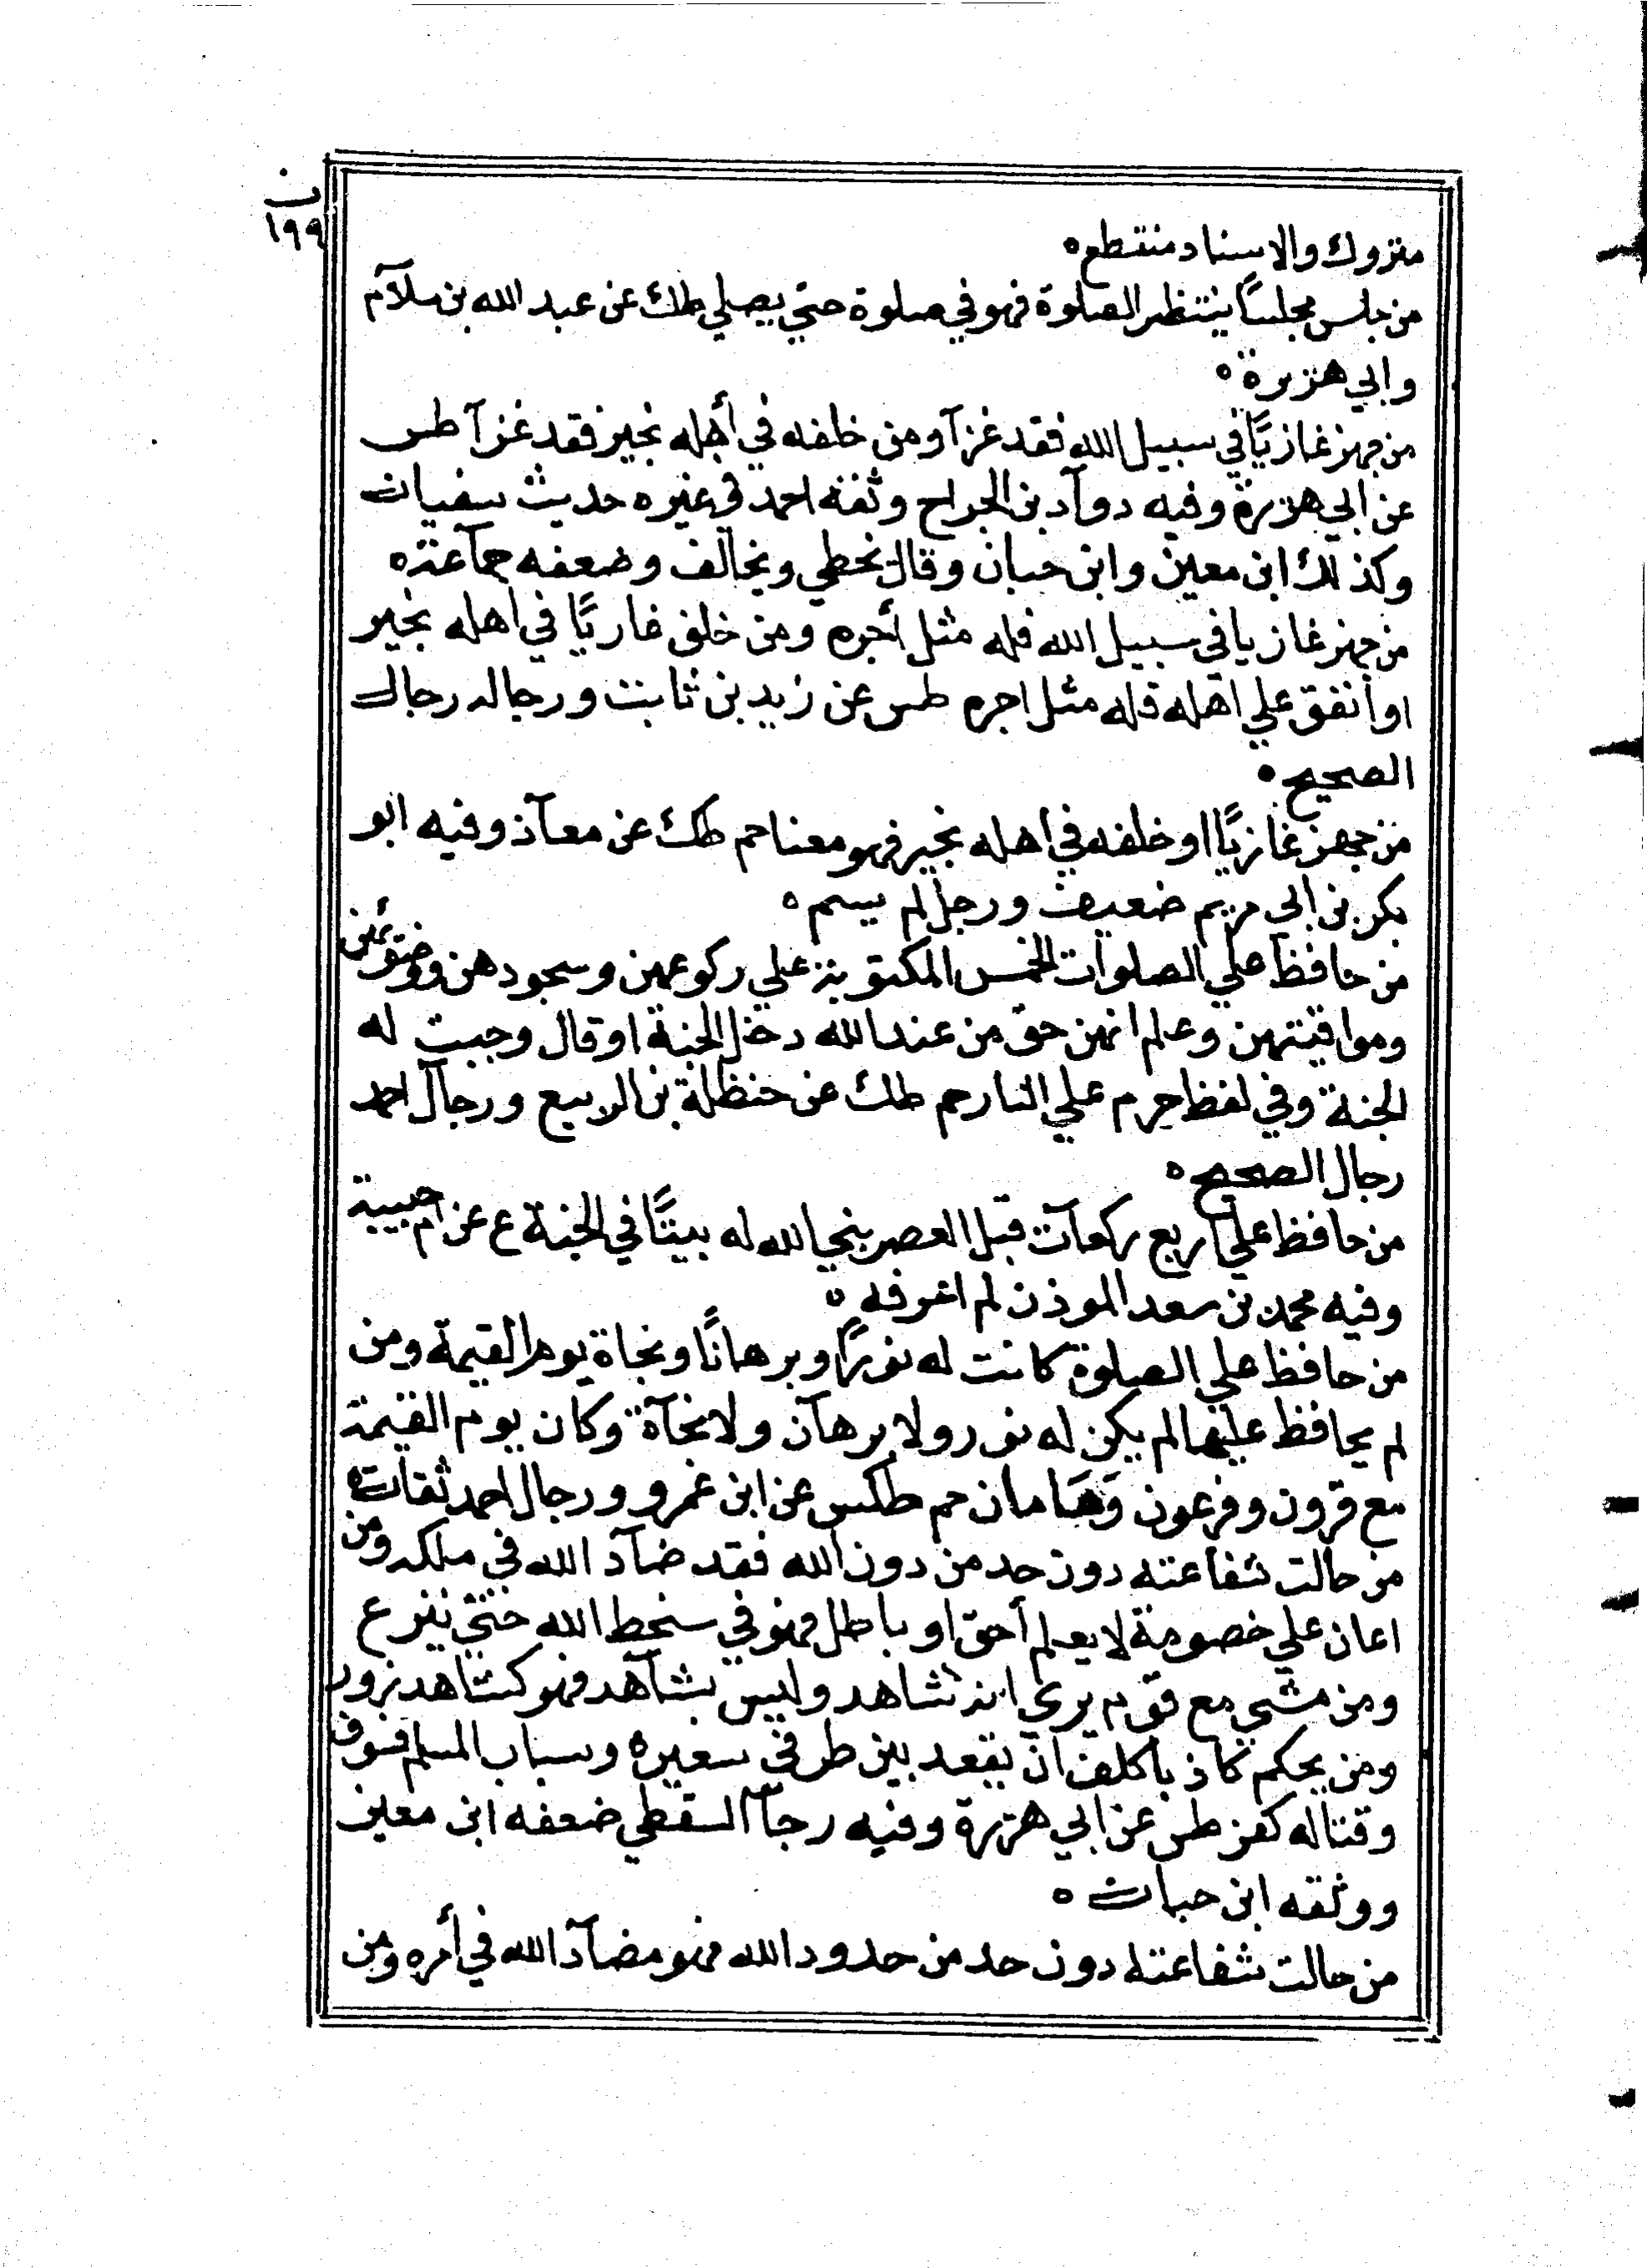 ن
١٩٩
متروك والاسناد منقطع ه
من جلس مجلسًا ينتظر الصلوة فهو في صلوة حتي يصلي طك عن عبد الله بن سلآم
وابي هريرة ه
من جهز غازيًا في سبيل الله فقد غزآ ومن خلفه في أهله بخير فقد غزآ طس
عن ابي هريرة وفيه دوآد بن الجراح وثقه احمد في غيره حديث سفيان
وكذلك ابن معين وابن حبان وقال يخطي ويخالف وضعفه جمآعة ه
من جهز غازيا في سبيل الله فله مثل أجره ومن خلف غازيًا في اهله بخير
او أنفق علي اهله فله مثل اجره طس عن زيد بن ثابت ورجاله رجال
الصحيح ه
من جهز غازيًا او خلفه في اهله بخير فهو معنا حم طك عن معآذ وفيه ابو
بكر بن ابي مريم ضعيف ورجل لم يسم ه
من حافظ علي الصلوات الخمس المكتوبة علي ركوعهن وسجودهن ووضوئهن
ومواقيتهن وعلم انهن حق من عند الله دخل الجنة او قال وجبت له
الجنة وفي لفظ حرم علي النار حم طك عن حنظلة بن الربيع ورجآل احمد
رجال الصحيح ه
من حافظ علي اربع ركعآت قبل العصر بني الله له بيتًا في الجنة ع عن ام حبيبة
وفيه محمد بن سعد الموذن لم اعرفه ه
من حافظ علي الصلوة كانت له نورًا وبرهانًا ونجاة يوم القيمة ومن
لم يحافظ عليها لم يكن له نور ولا برهآن ولا نجآة وكان يوم القيمة
مع قرون وفرعون وهَامان حم طكس عن ابن عمرو ورجال احمد ثقات ه
من حالت شفاعته دون حد من دون الله فقد ضآد الله في ملكه ومن
اعان علي خصومة لا يعلم أحق او باطل فهو في سخط الله حتي ينزع
ومن مشي مع قوم يري انه شاهد وليس بشآهد فهو كشاهد زور
ومن يحكم كاذبا كلف ان يقعد بين طرفي سعيره وسباب المسلم فسوق
وقتاله كفر طس عن ابي هريرة وفيه رجآ السقطي ضعفه ابن معين
ووثقه ابن حبان ه
من حالت شفاعته دون حد من حدود الله فهو مضآد الله في أمره ومن